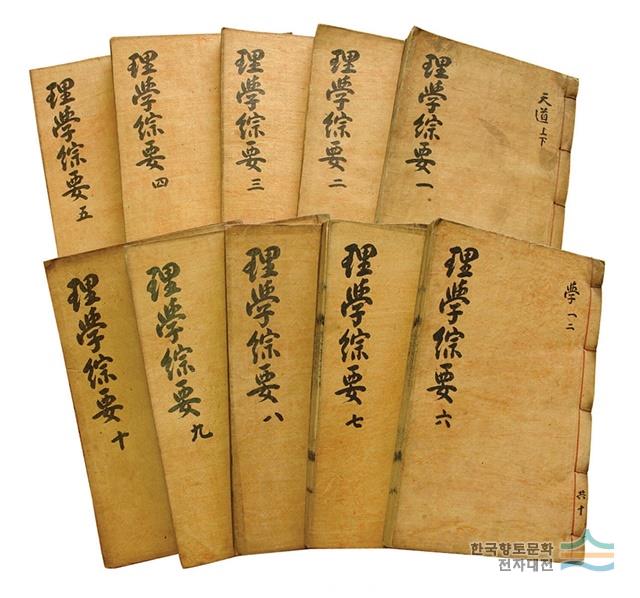 理學綜要 一
天道 上下
理學綜要 二
理學綜要 三
理學綜要 四
理學綜要 五
理學綜要 六
學 一二
共十
理學綜要 七
理學綜要 八
理學綜要 九
理學綜要 十
한국향토문화
전자대전